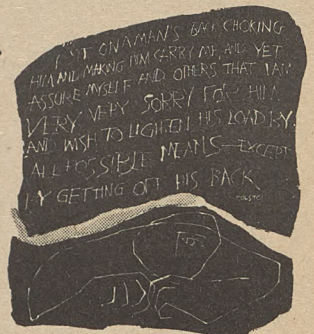 I SIT ON A MAN'S BACK CHOKING
HIM AND MAKING HIM CARRY ME, AND YET
ASSURE MYSELF AND OTHERS THAT I AM
VERY VERY SORRY FOR HIM
AND WISH TO LIGHTEN HIS LOAD BY
ALL POSSIBLE MEANS—EXCEPT
BY GETTING OFF HIS BACK
TOLSTOI